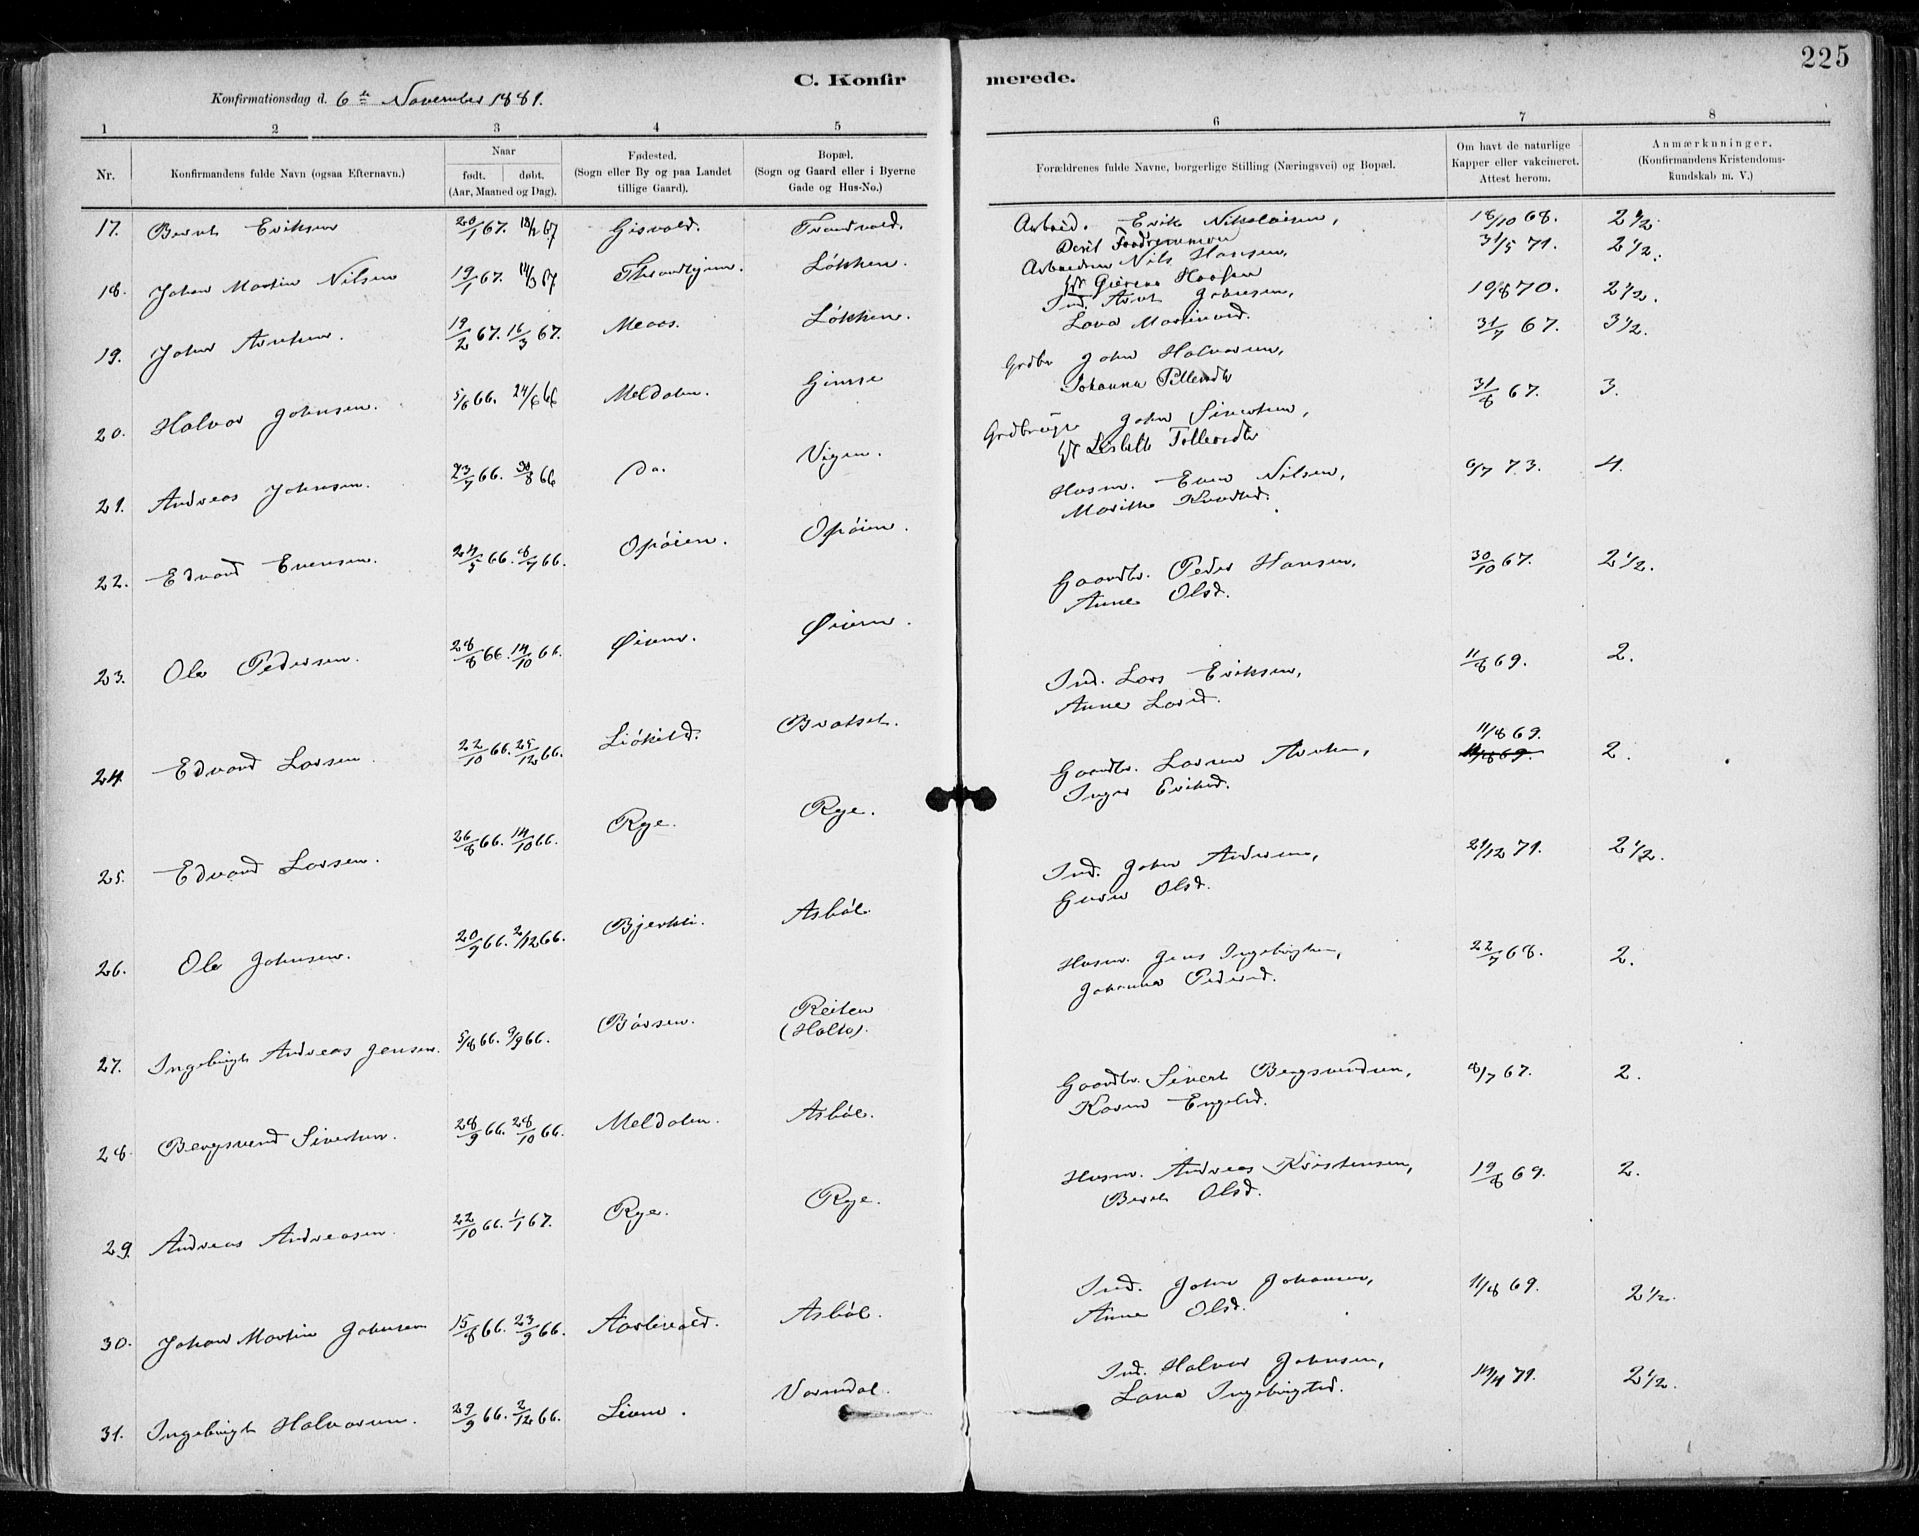 225
C. Konfirmerede.
Konfirmationsdag d. 6te November 1881.
1 2 3 4 5 6 7 8
Nr. Konfirmandens fulde Navn (ogsaa Efternavn.) Naar født. døbt. (Aar, Maaned og Dag). Fødested. (Sogn eller By og paa Landet tillige Gaard). Bopæl. (Sogn og Gaard eller i Byerne Gade og Hus-No.) Forældrenes fulde Navne, borgerlige Stilling (Næringsvei) og Bopæl. Om havt de naturlige Kapper eller vakcineret. Attest herom. Anmærkninger. (Konfirmandens Kristendomskundskab m. V.)
17. Bernt Eriksen 20/1 67. Gisvold. Trondvold. Arbeid. Erik Nikolaisen, 18/10 68. 2 1/2.
18. Johan Martin Nilsen 19/1 67. Throndhjem. Løkken. Arbeider Nils Hansen, 31/5 71. 2 1/2.
19. John Arntsen 19/2 67. 16/3 67. Meaas. Løkken. Ind. Arnt Johnsen, 19/8 70. 2 1/2.
20. Halvor Johnsen. 5/6 66. 24/6 66 Meldalen. Gimse Grdbr John Halvorsen, 31/7 67. 3 1/2.
21. Andreas Johnsen. 23/7 66. 30/8 66 Do. Vigen. Grdbruger John Sivertsen, 31/8 67. 3.
22. Edvard Evensen. 24/5 66. 8/7 66. Opøien. Opøien. Husm. Even Nilsen, 6/7 73. 4.
Marith Knudsd.
23. Ole Pedersen. 28/8 66. 14/10 66. Øium. Øium. Gaardbr. Peder Hansen, 30/10 67. 2 1/2.
Anne Olsd.
24. Edvard Larsen. 22/10 66. 25/12 66. Bratset. Ind. Lars Eriksen, 11/8 69. 2.
Anne Larsd.
25. Edvard Larsen. 26/8 66. 14/10 66. Rye. Rye. Gaardbr. 11/8 69. 2.
Inger Eriksd.
26. Ole Johnsen. 20/9 66. 2/12 66. Bjerkli. Asbøl Ind. John Andersen, 21/12 71. 2 1/2.
Guru Olsd.
27. Ingebrigt Andreas Jensen. 5/8 66. 9/9 66. Børsen. Reiten (Holte). Husm. Jens Ingebrigtsen, 22/7 68. 2.
Johanna Pedersd.
28. Bergsvend Sivertsen. 28/9 66. 28/10 66. Meldalen. Asbøl. Gaardbr. Sivert Bergsvendsen, 8/7 67. 2.
Karen Engelsd.
29. Andreas Andreasen. 22/10 66. 1/1 67. Rye. Rye. Husm. Andreas Kristensen, 19/8 69. 2.
Berit Olsd.
30. Johan Martin Johnsen 15/8 66. 23/9 66. Asbøl. Ind. John Johansen, 11/8 69. 2 1/2.
Anne Olsd.
31. Ingebrigt Halvorsen. 29/9 66. 2/12 66. Vormdal. Ind. Halvor Johnsen, 71. 2 1/2.
Lava Ingebrigtsd.